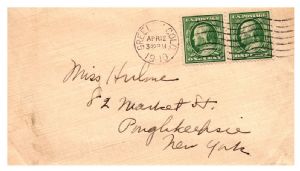 GREELEY COLO.
APR 12
3:30 PM
1910
U.S. POSTAGE U.S. POSTAGE
ONE CENT ONE CENT
Miss Hulme
82 Market St.
Poughkeepsie
New York